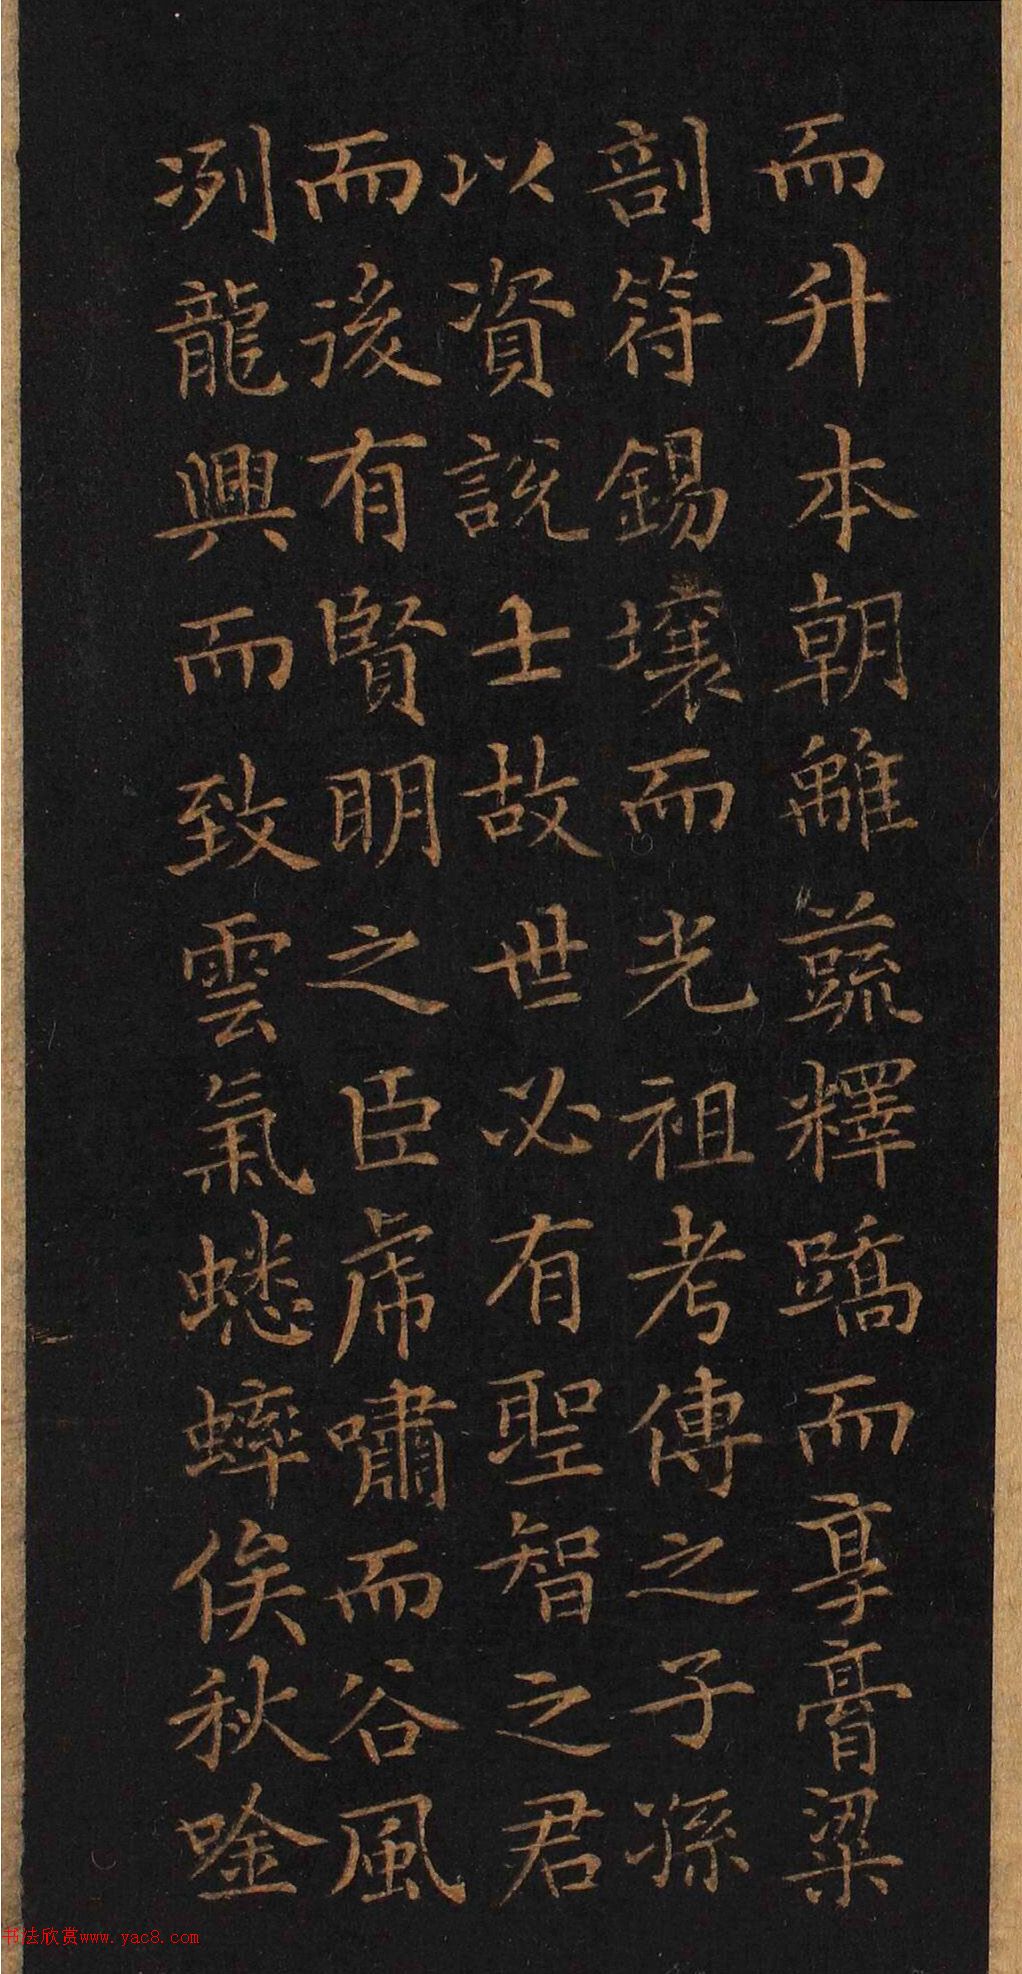 而升本朝離蔬釋蹻而享膏粱
剖符錫壤而光祖考傳之子孫
以資說士故世必有聖智之君
而後有賢明之臣虎嘯而谷風
冽龍興而致雲氣蟋蟀俟秋唫
书法欣赏www.yac8.com